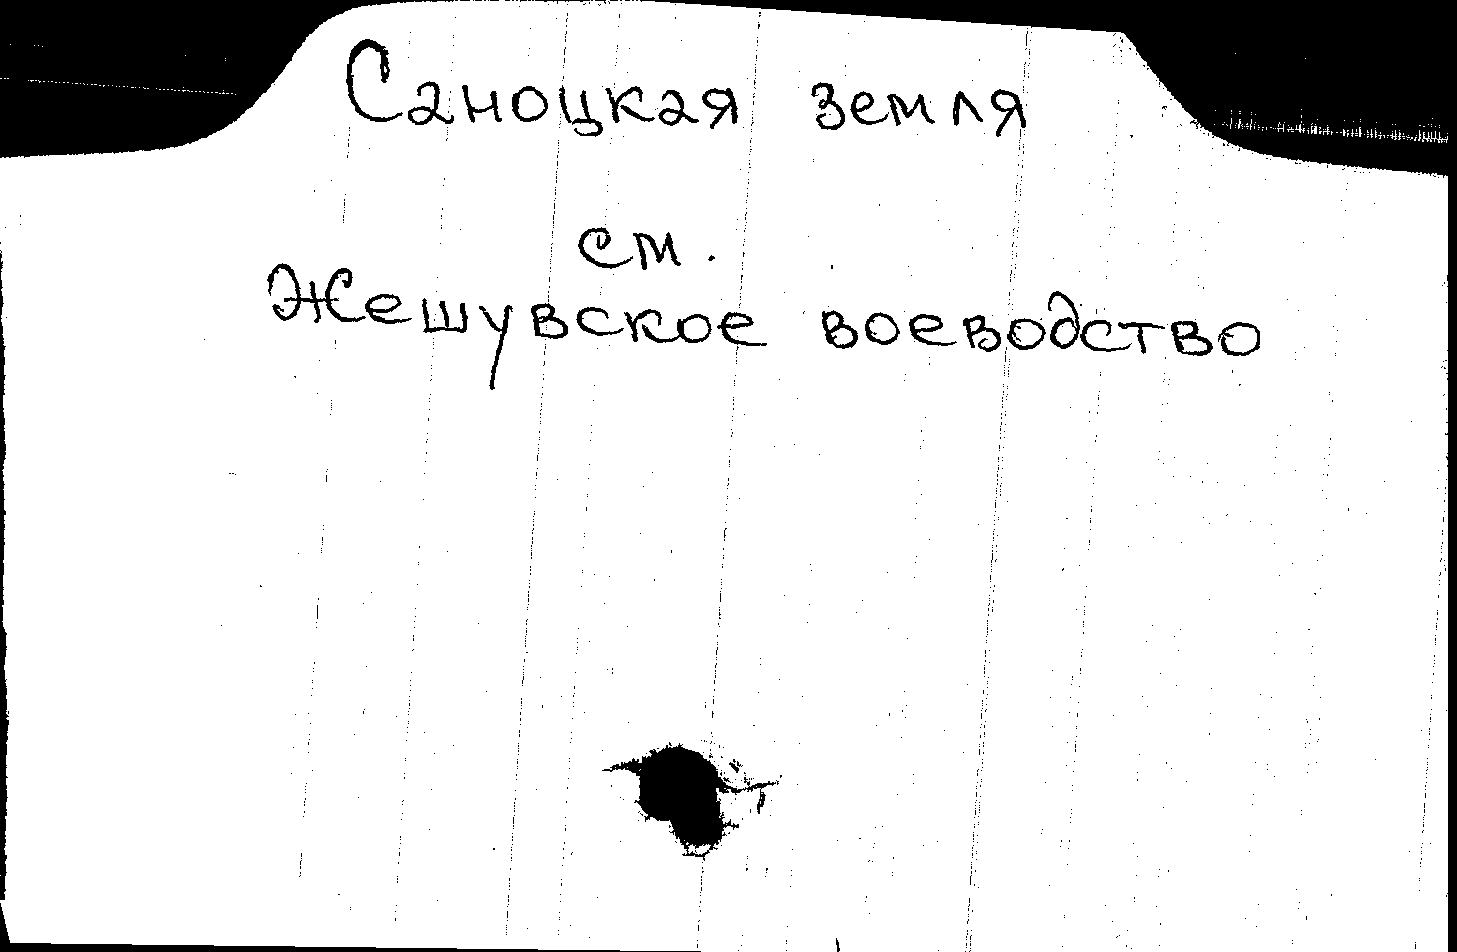 Саноцкая земля
см.
Жешувское воеводство